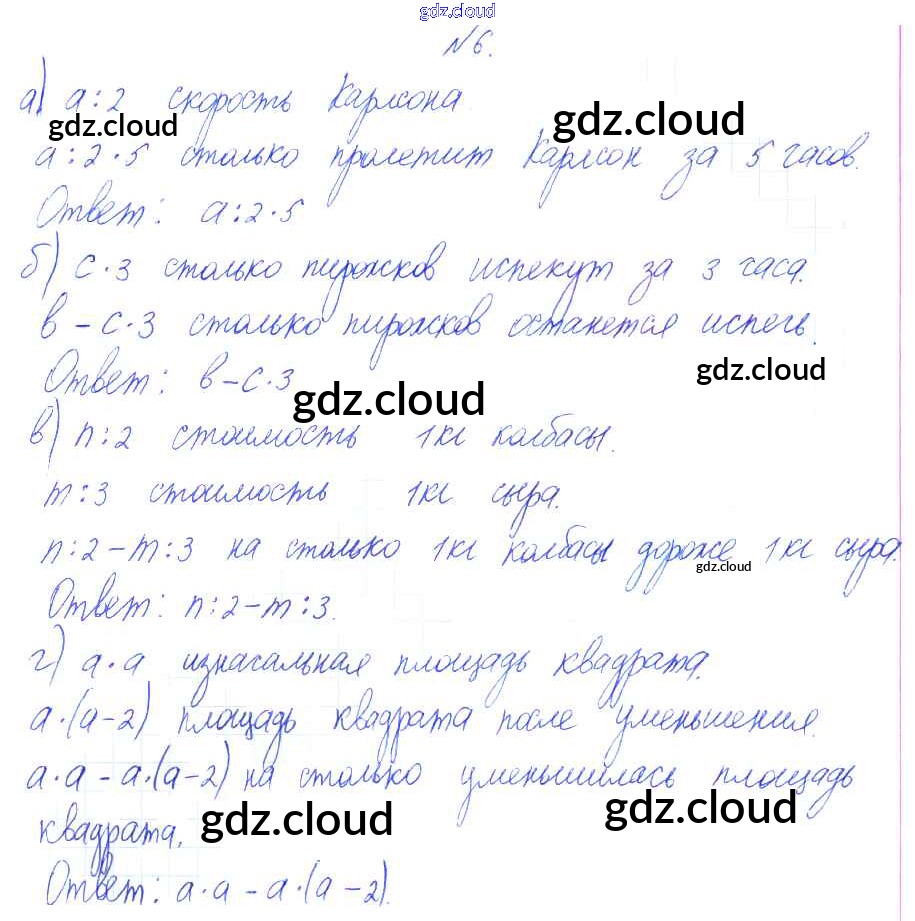 gdz.cloud
№6.
а) a:2 скорость Карлсона.
gdz.cloud gdz.cloud
a:2·5 столько пролетит Карлсон за 5 часов.
Ответ: a:2·5
б) c·3 столько пирожков испекут за 3 часа.
в-c·3 столько пирожков останется испечь.
gdz.cloud
Ответ: в-c·3
gdz.cloud
в) n:2 стоимость 1кг колбасы.
m:3 стоимость 1кг сыра.
n:2-m:3 на столько 1кг колбасы дороже 1кг сыра.
gdz.cloud
Ответ: n:2-m:3.
г) a·a изначальная площадь квадрата.
a·(a-2) площадь квадрата после уменьшения.
a·a-a·(a-2) на столько уменьшилась площадь
gdz.cloud
квадрата.
gdz.cloud
Ответ: a·a-a·(a-2).